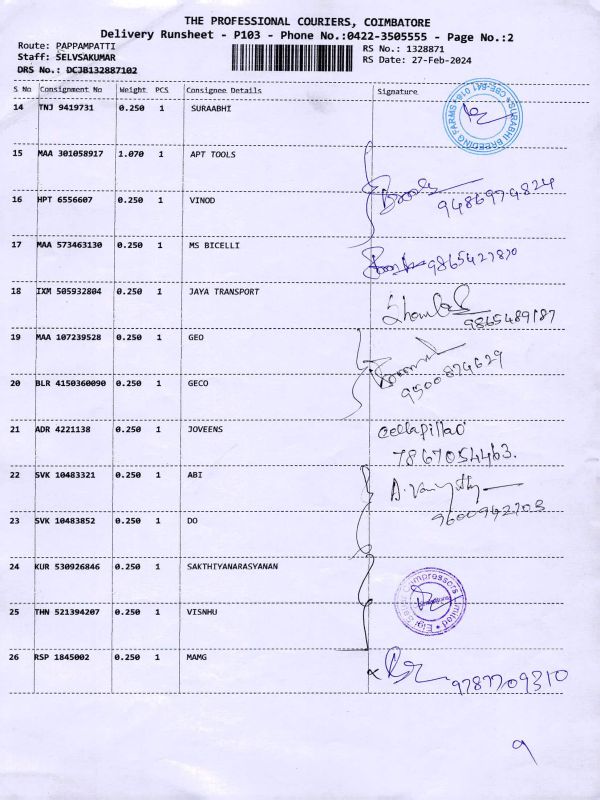 THE PROFESSIONAL COURIERS, COIMBATORE
Delivery Runsheet - P103 - Phone No.:0422-3505555 - Page No.:2
Route: PAPPAMPATTI RS No.: 1328871
Staff: SELVSAKUMAR RS Date: 27-Feb-2024
DRS No.: DCJB132887102
S No Consignment No Weight PCS Consignee Details Signature
14 TNJ 9419731 0.250 1 SURAABHI
SURABHI BREEDING FARMS CBE-641 016
15 MAA 301058917 1.070 1 APT TOOLS
16 HPT 6556607 0.250 1 VINOD
9486974824
17 MAA 573463130 0.250 1 MS BICELLI
9865427870
18 IXM 505932804 0.250 1 JAYA TRANSPORT
9865489187
19 MAA 107239528 0.250 1 GEO
9500874629
20 BLR 4150360090 0.250 1 GECO
21 ADR 4221138 0.250 1 JOVEENS
7867054463.
22 SVK 10483321 0.250 1 ABI
9600942703
23 SVK 10483852 0.250 1 DO
24 KUR 530926846 0.250 1 SAKTHIYANARASYANAN
Compressors Limited
25 THN 521394207 0.250 1 VISNHU
26 RSP 1845002 0.250 1 MAMG
9787709310
9